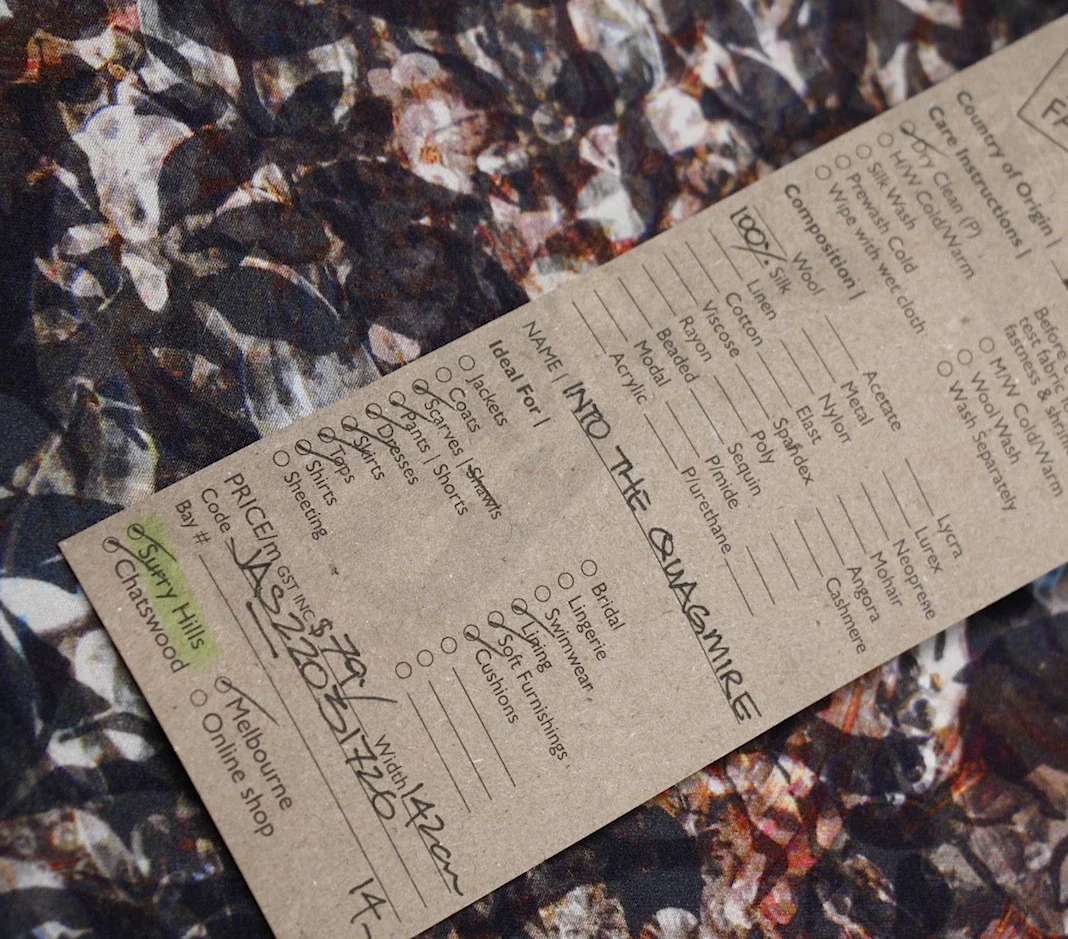 FF
Country of Origin |
Care Instructions |
Dry Clean (P)
H/W Cold/Warm
Silk Wash
Prewash Cold
Wipe with wet cloth
Before
test fabric
fastness &
M/W Cold/Warm
Wool Wash
Wash Separately
Composition |
Wool
100% Silk
Linen
Cotton
Viscose
Rayon
Beaded
Modal
Acrylic
Acetate
Metal
Nylon
Elast
Spandex
Poly
Sequin
P/mide
P/urethane
Lycra
Lurex
Neoprene
Mohair
Angora
Cashmere
NAME | INTO THE QUAGMIRE
Ideal For |
Jackets
Coats
Scarves | Shawls
Pants | Shorts
Dresses
Skirts
Tops
Shirts
Sheeting
Bridal
Lingerie
Swimwear
Lining
Soft Furnishings
Cushions
PRICE/m GST INC $79/ Width 142cm
Code JAS22031726
Bay # 14
Surry Hills
Chatswood
Melbourne
Online shop